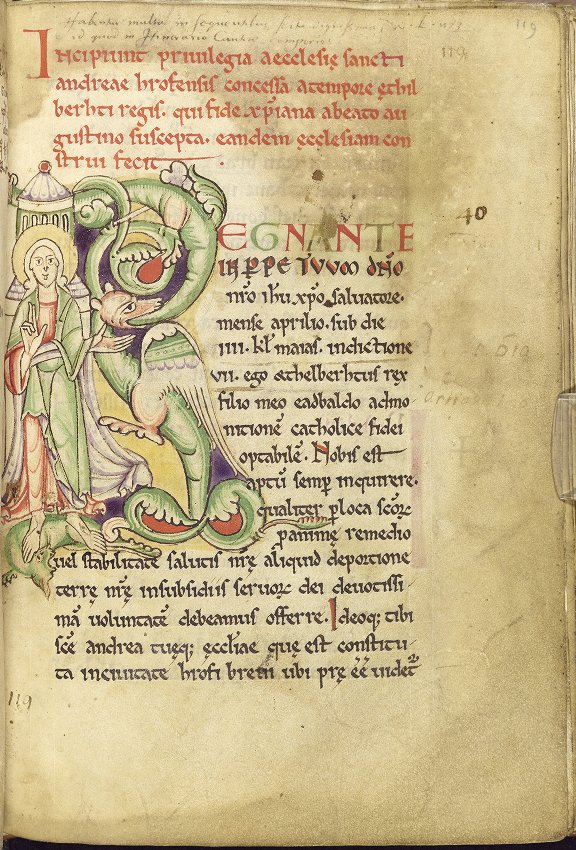 119
119
Incipiunt priuilegia aecclesię sancti
andreae hrofensis concessa a tempore ęthil
berhti regis. qui fide xp̄iana a beato au
gustino suscepta. eandem ęcclesiam con
strui fecit
40
REGNANTE
IN PERPETUUM DN̄O
nr̄o ihū xp̄o saluatore.
mense aprilio. sub die
iiii. kł maias. indictione
vii. ego ęthelberhtus rex
filio meo eadbaldo admo
nitionē catholice fidei
optabilē. Nobis est
aptū semp̄ inquirere.
qualiter p̱ loca scōꝝ
pro animę remedio
uel stabilitate salutis nr̄ę aliquid de portione
terrę nr̄ę in subsidiis seruoꝝ dei deuotissi
mā uoluntatē debeamus offerre. Ideoq; tibi
sc̄e andrea tuęq; ęccłiae quę est constitu
ta in ciuitate hrofi breui ubi pręēē uidet᷑
119